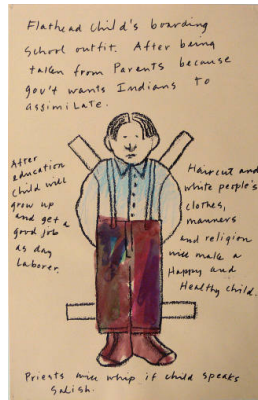 Flathead child's boarding
school outfit. After being
taken from Parents because
gov't wants Indians to
assimilate.
After
education
child will
grow up
and get a
good job
as day
laborer.
Haircut and
white people's
clothes,
manners
and religion
will make a
Happy and
Healthy child.
Priests will whip if child speaks
Salish.